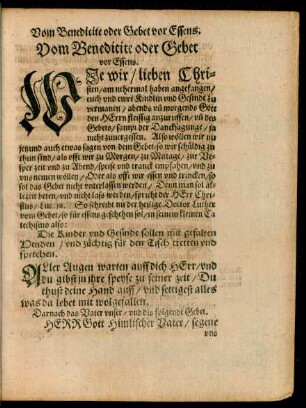 Vom Benedicite oder Gebet vor Essens.
Vom Benedicite oder Gebet
vor Essens.
WJe wir / lieben Chri-
sten / am nehermal haben angefangen /
euch vnd ewre Kindlin vnd Gesinde zu
vermanen / abends vñ morgends Gott
den HErrn fleissig anzuruffen / vñ des
Gebets / sampt der Dancksagunge / ja
nicht zuuergessen. Also wöllen wir nu
jetzund auch etwas sagen von dem Gebet so wir schüldig zu
thun sind / als offt wir zu Morgen / zu Mittage / zur Ves-
per zeit vnd zu Abend / speise vnd tranck empfahen / vnd zu
vns nemen wöllen / Oder als offt wir essen vnd trincken / so
sol das Gebet nicht vnterlassen werden / Denn man sol al-
lezeit beten / vnd nicht laß werden / spricht der HErr Chri-
stus / Luc. 18. So schreibt nu der heilige Doctor Luther
vom Gebet / so für essens geschehen sol / in seinem kleinen Ca-
techismo also:
Die Kinder vnd Gesinde sollen mit gefalten
Henden / vnd züchtig für den Tisch tretten vnd
sprechen.
ALler Augen warten auff dich HErr / vnd
du gibst in ihre speyse zu seiner zeit / Du
thust deine Hand auff / vnd settigest alles
was da lebet mit wolgefallen.
Darnach das Vater vnser / vnd diß folgend Gebet.
HERR Gott Himlischer Vater / segene
vns